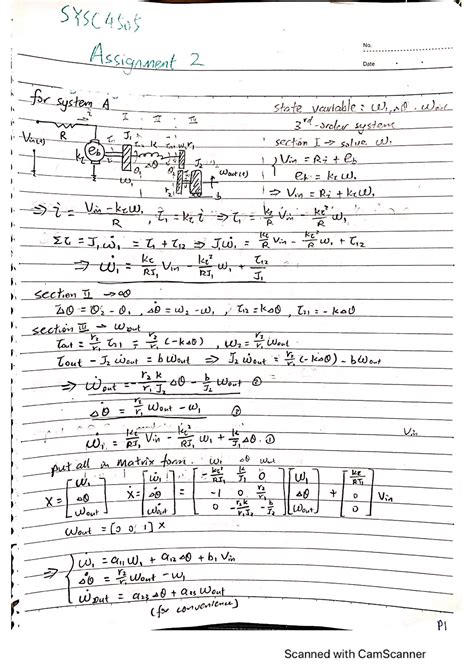 SYSC4505
Assignment 2
No.
Date
for system A
state variable: ω₁, Δθ, ωout
3rd-order system
section I → solve ω₁
I II III
R
J₁
Vin(t)
eb
kt
ω₁
Δθ
J₂
ωout(t)
b
Vin = Ri + eb
eb = kt ω₁
⇒ Vin = Ri + kt ω₁
⇒ i = (Vin - kt ω₁)/R , τ₁ = kt i ⇒ τ₁ = kt/R Vin - kt²/R ω₁
Στ = J₁ω̇₁ = τ₁ + τ₁₂ ⇒ J₁ω̇₁ = kt/R Vin - kt²/R ω₁ + τ₁₂
⇒ ω̇₁ = kt/RJ₁ Vin - kt²/RJ₁ ω₁ + τ₁₂/J₁
section II → Δθ
Δθ = θ₂ - θ₁ , Δθ̇ = ω₂ - ω₁ , τ₁₂ = kΔθ , τ₂₁ = -kΔθ
section III → ωout
τout = r₂/r₁ τ₂₁ = r₂/r₁ (-kΔθ) , ω₂ = r₂/r₁ ωout
τout - J₂ω̇out = bωout ⇒ J₂ω̇out = r₂/r₁ (-kΔθ) - bωout
⇒ ω̇out = - r₂k/r₁J₂ Δθ - b/J₂ ωout ③
Δθ̇ = r₂/r₁ ωout - ω₁ ②
ω̇₁ = kt/RJ₁ Vin - kt²/RJ₁ ω₁ + k/J₁ Δθ ①
Vin
put all in Matrix form. ω₁ Δθ ωout
X = [ω₁ Δθ ωout] Ẋ = [ω̇₁ Δθ̇ ω̇out] = [-kt²/RJ₁ k/J₁ 0; -1 0 r₂/r₁; 0 -r₂k/r₁J₂ -b/J₂] [ω₁ Δθ ωout] + [kt/RJ₁ 0 0] Vin
ωout = [0 0 1] X
⇒ { ω̇₁ = a₁₁ω₁ + a₁₂Δθ + b₁Vin
Δθ̇ = r₂/r₁ ωout - ω₁
ω̇out = a₂₃Δθ + a₃₃ωout
(for convenience)
P1
Scanned with CamScanner